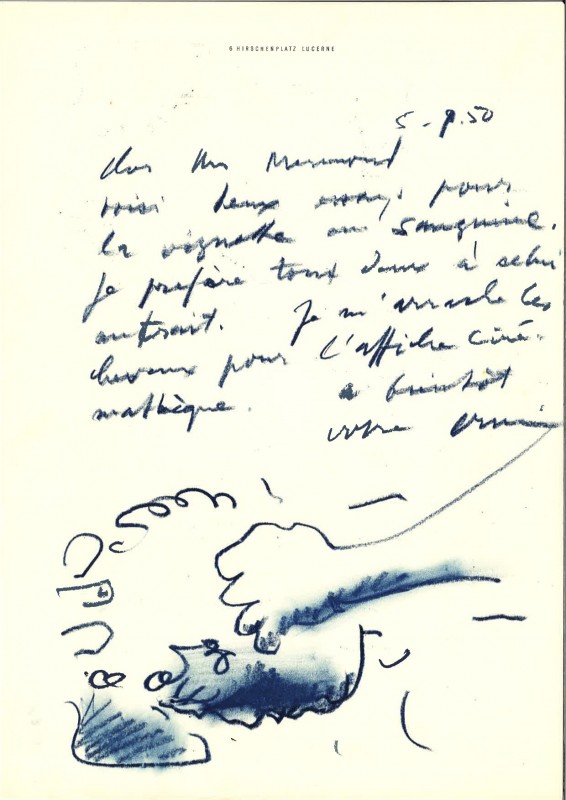 6 HIRSCHENPLATZ LUCERNE
5 - 9.50
cher Mr Mermoud
voici deux essays pour
la vignette en sanguine.
Je préfère tous deux à celui
au trait. Je m'arrache les
cheveux pour l'affiche Ciné-
mathèque. à bientôt
votre erni